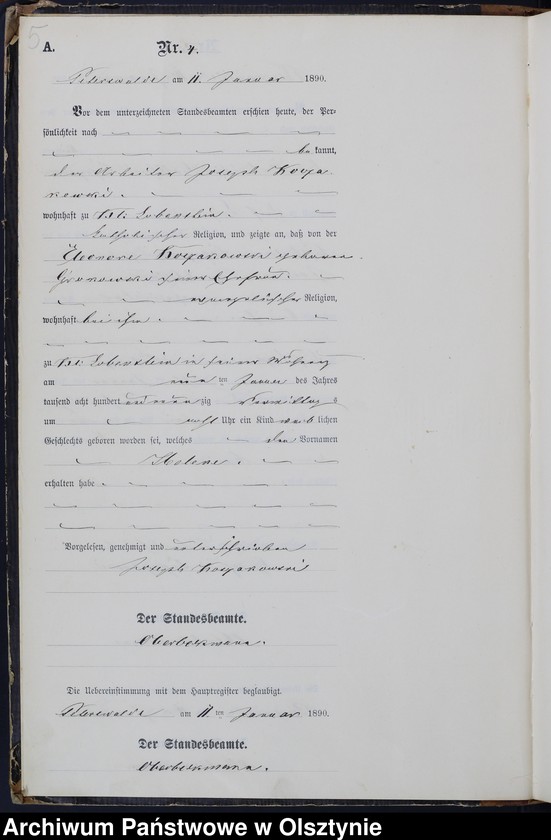 5
A.
Nr. 4.
am 11. Januar 1890.
Vor dem unterzeichneten Standesbeamten erschien heute, der Per-
sönlichkeit nach
be kannt,
der Arbeiter Joseph
wohnhaft zu Kl. Lobenstein.
katholischer Religion, und zeigte an, daß von der
Eleonore geborenen
Gronowski seiner Ehefrau.
evangelischer Religion,
wohnhaft bei ihm.
zu Kl. Lobenstein in seiner Wohnung
am neun ten Januar des Jahres
tausend acht hundert und neun zig Vormittag s
um acht Uhr ein Kind weib lichen
Geschlechts geboren worden sei, welches den Vornamen
Helene.
erhalten habe.
Vorgelesen, genehmigt und unterschrieben
Joseph
Der Standesbeamte.
Die Uebereinstimmung mit dem Hauptregister beglaubigt.
am 11 ten Januar 1890.
Der Standesbeamte.
Archiwum Państwowe w Olsztynie